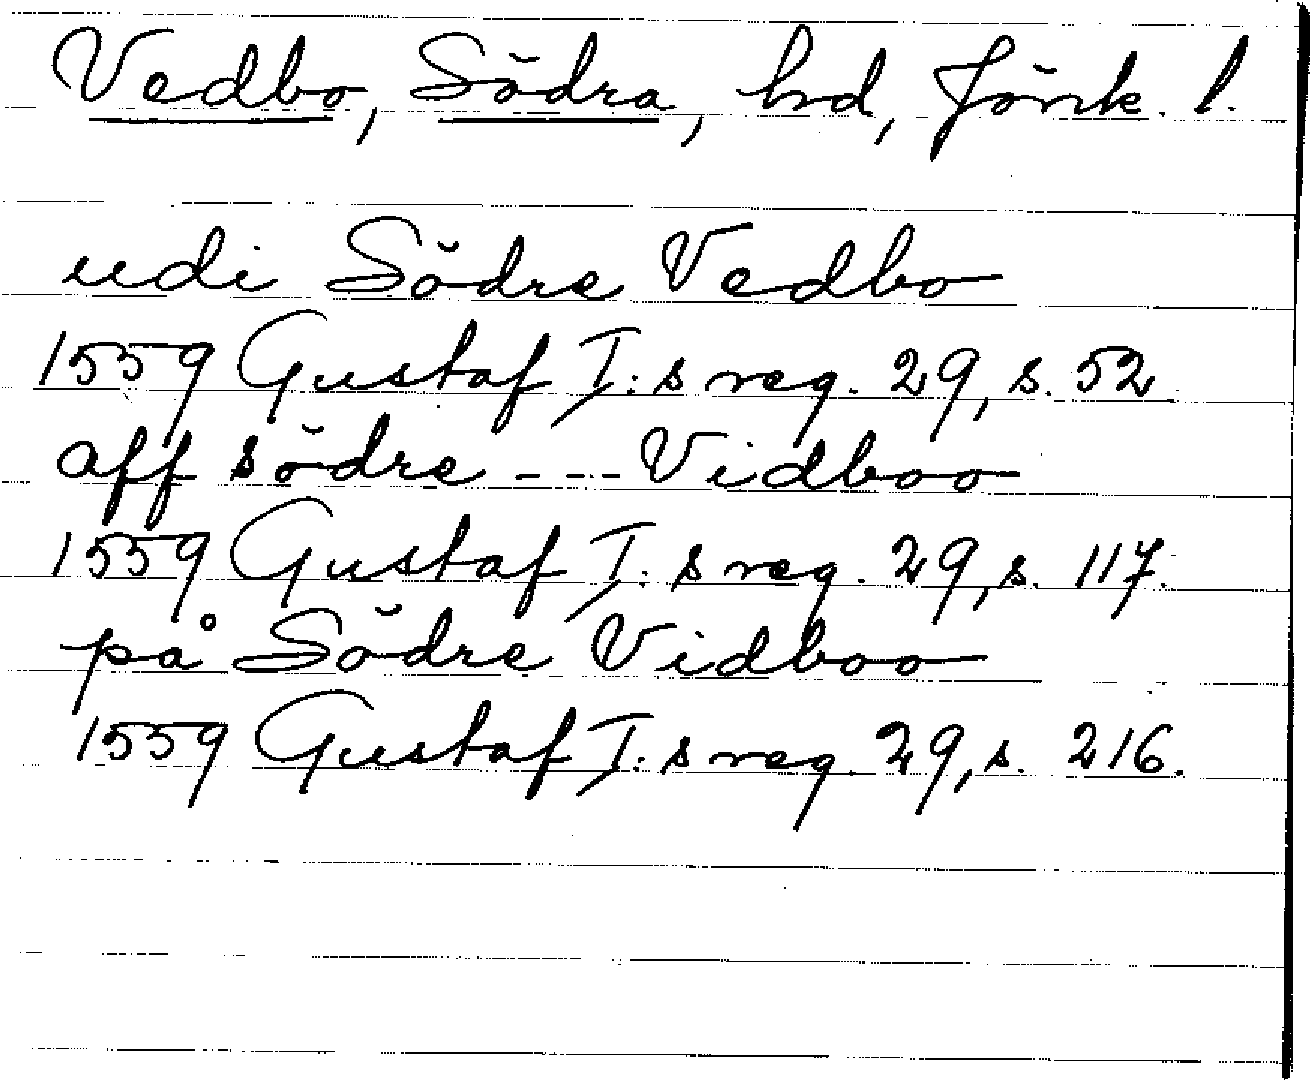 Vedbo, Södra, hd, Jönk. l.
udi Södre Vedbo
1559 Gustaf I:s reg. 29, s. 52
aff södre --- Vidboo
1559 Gustaf I:s reg. 29, s. 117.
på Södre Vidboo
1559 Gustaf I:s reg. 29, s. 216.